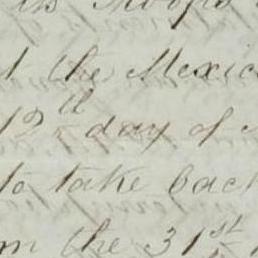 its Troops
the Mexic
12th day of
to take back
the 31st